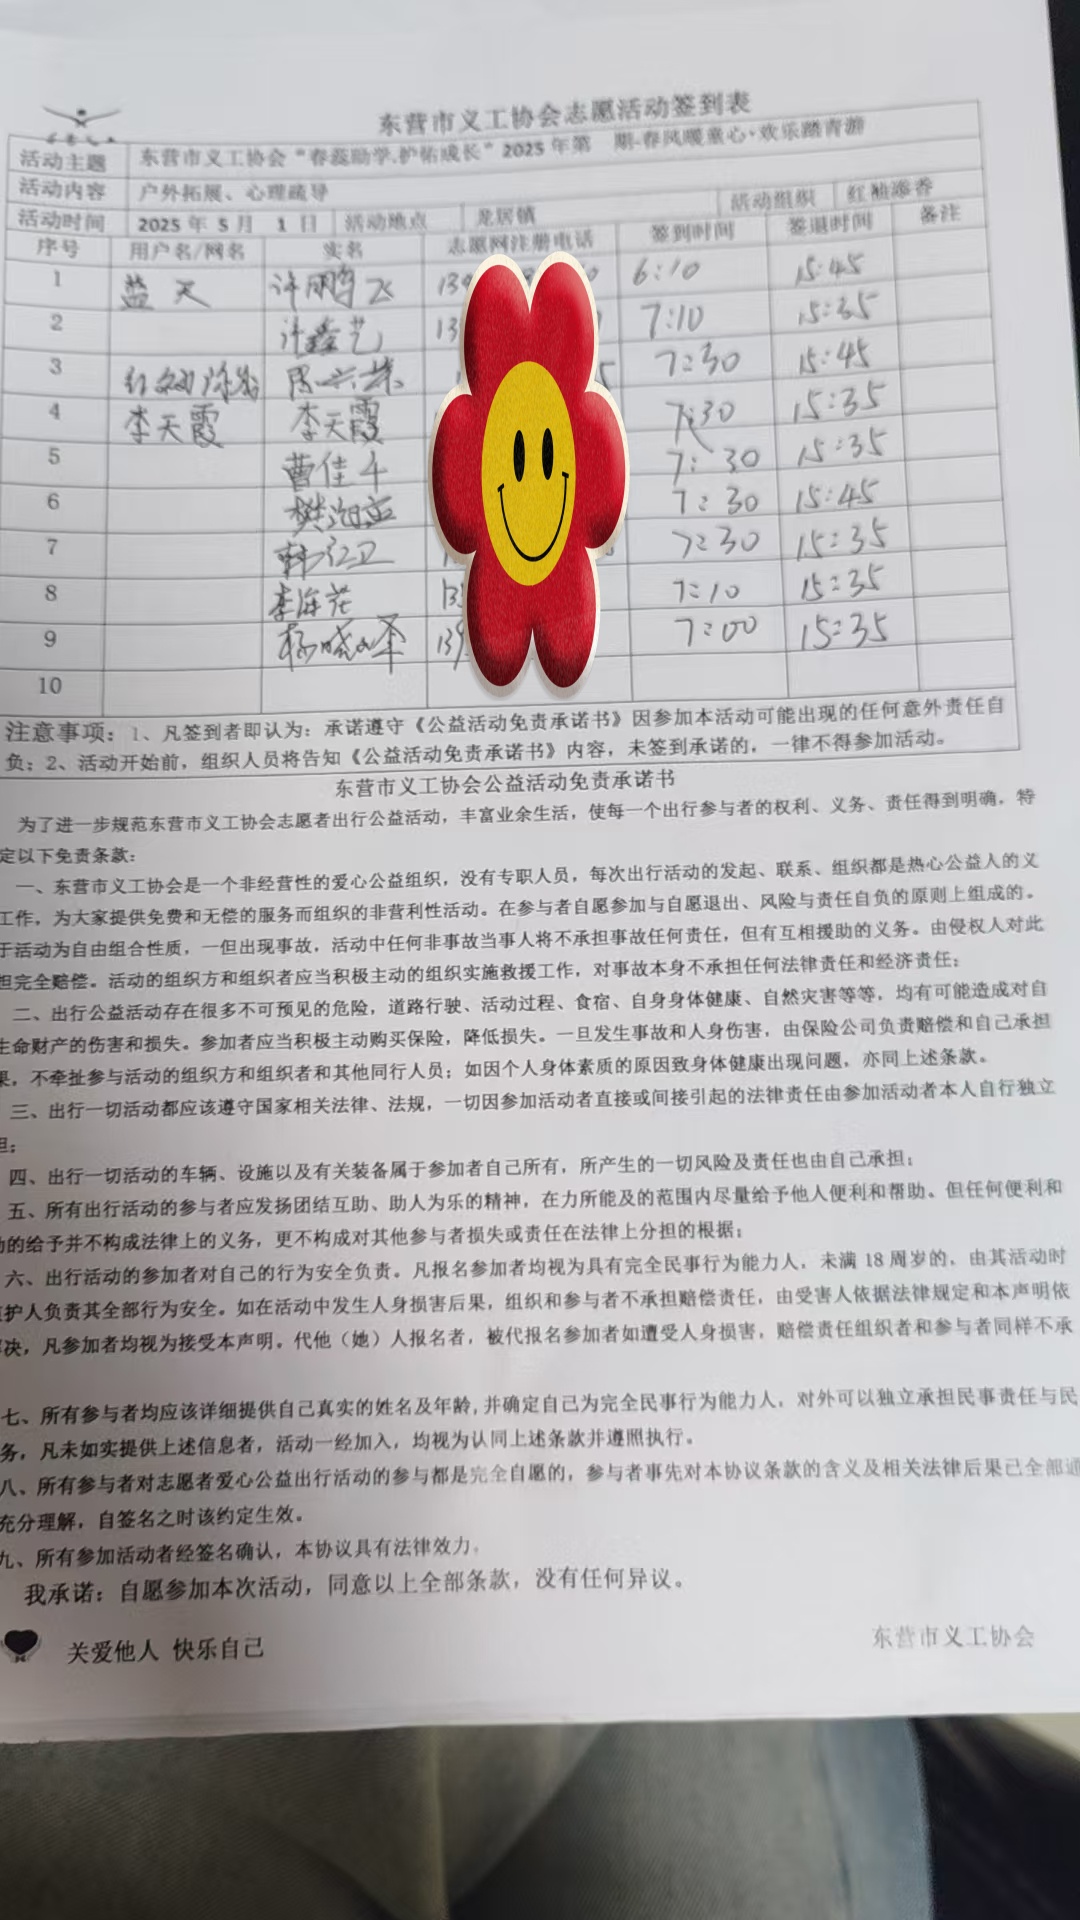 东营市义工协会志愿活动签到表
活动主题 东营市义工协会“春蕊助学.护佑成长”2025年第 期-春风暖童心·欢乐踏青游
活动内容 户外拓展、心理疏导 活动组织 红袖添香
活动时间 2025 年 5 月 1 日 活动地点 龙居镇
序号 用户名/网名 实名 志愿网注册电话 签到时间 签退时间 备注
1 蓝天 许鹏飞 6:10 15:45
2 许鑫艺 13 7:10 15:35
3 7:30 15:45
4 李天霞 李天霞 7:30 15:35
5 曹佳 7:30 15:35
6 樊 7:30 15:45
7 韩红卫 7:30 15:35
8 李海花 7:10 15:35
9 杨晓泽 139 7:00 15:35
10
注意事项：1、凡签到者即认为：承诺遵守《公益活动免责承诺书》因参加本活动可能出现的任何意外责任自
负；2、活动开始前，组织人员将告知《公益活动免责承诺书》内容，未签到承诺的，一律不得参加活动。
东营市义工协会公益活动免责承诺书
为了进一步规范东营市义工协会志愿者出行公益活动，丰富业余生活，使每一个出行参与者的权利、义务、责任得到明确，特
定以下免责条款：
一、东营市义工协会是一个非经营性的爱心公益组织，没有专职人员，每次出行活动的发起、联系、组织都是热心公益人的义
工作，为大家提供免费和无偿的服务而组织的非营利性活动。在参与者自愿参加与自愿退出、风险与责任自负的原则上组成的。
于活动为自由组合性质，一但出现事故，活动中任何非事故当事人将不承担事故任何责任，但有互相援助的义务。由侵权人对此
担完全赔偿。活动的组织方和组织者应当积极主动的组织实施救援工作，对事故本身不承担任何法律责任和经济责任；
二、出行公益活动存在很多不可预见的危险，道路行驶、活动过程、食宿、自身身体健康、自然灾害等等，均有可能造成对自
生命财产的伤害和损失。参加者应当积极主动购买保险，降低损失。一旦发生事故和人身伤害，由保险公司负责赔偿和自己承担
果，不牵扯参与活动的组织方和组织者和其他同行人员；如因个人身体素质的原因致身体健康出现问题，亦同上述条款。
三、出行一切活动都应该遵守国家相关法律、法规，一切因参加活动者直接或间接引起的法律责任由参加活动者本人自行独立
担；
四、出行一切活动的车辆、设施以及有关装备属于参加者自己所有，所产生的一切风险及责任也由自己承担；
五、所有出行活动的参与者应发扬团结互助、助人为乐的精神，在力所能及的范围内尽量给予他人便利和帮助。但任何便利和
助的给予并不构成法律上的义务，更不构成对其他参与者损失或责任在法律上分担的根据；
六、出行活动的参加者对自己的行为安全负责。凡报名参加者均视为具有完全民事行为能力人，未满 18 周岁的，由其活动时
监护人负责其全部行为安全。如在活动中发生人身损害后果，组织和参与者不承担赔偿责任，由受害人依据法律规定和本声明依
解决，凡参加者均视为接受本声明。代他（她）人报名者，被代报名参加者如遭受人身损害，赔偿责任组织者和参与者同样不承
七、所有参与者均应该详细提供自己真实的姓名及年龄,并确定自己为完全民事行为能力人，对外可以独立承担民事责任与民
务，凡未如实提供上述信息者，活动一经加入，均视为认同上述条款并遵照执行。
八、所有参与者对志愿者爱心公益出行活动的参与都是完全自愿的，参与者事先对本协议条款的含义及相关法律后果已全部通
充分理解，自签名之时该约定生效。
九、所有参加活动者经签名确认，本协议具有法律效力。
我承诺：自愿参加本次活动，同意以上全部条款，没有任何异议。
关爱他人 快乐自己 东营市义工协会